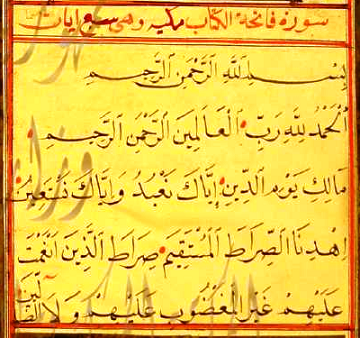 سورة فاتحة الكتاب مكية وهي سبع ايات
بِسْمِ اللَّهِ الرَّحْمَنِ الرَّحِيمِ
اَلْحَمْدُ لِلَّهِ رَبِّ الْعَالَمِينَ الرَّحْمَنِ الرَّحِيمِ
مَالِكِ يَوْمِ الدِّينِ إِيَّاكَ نَعْبُدُ وَإِيَّاكَ نَسْتَعِينُ
اِهْدِنَا الصِّرَاطَ الْمُسْتَقِيمَ صِرَاطَ الَّذِينَ اَنْعَمْتَ
عَلَيْهِمْ غَيْرِ الْمَغْضُوبِ عَلَيْهِمْ وَلَا الضَّالِّينَ